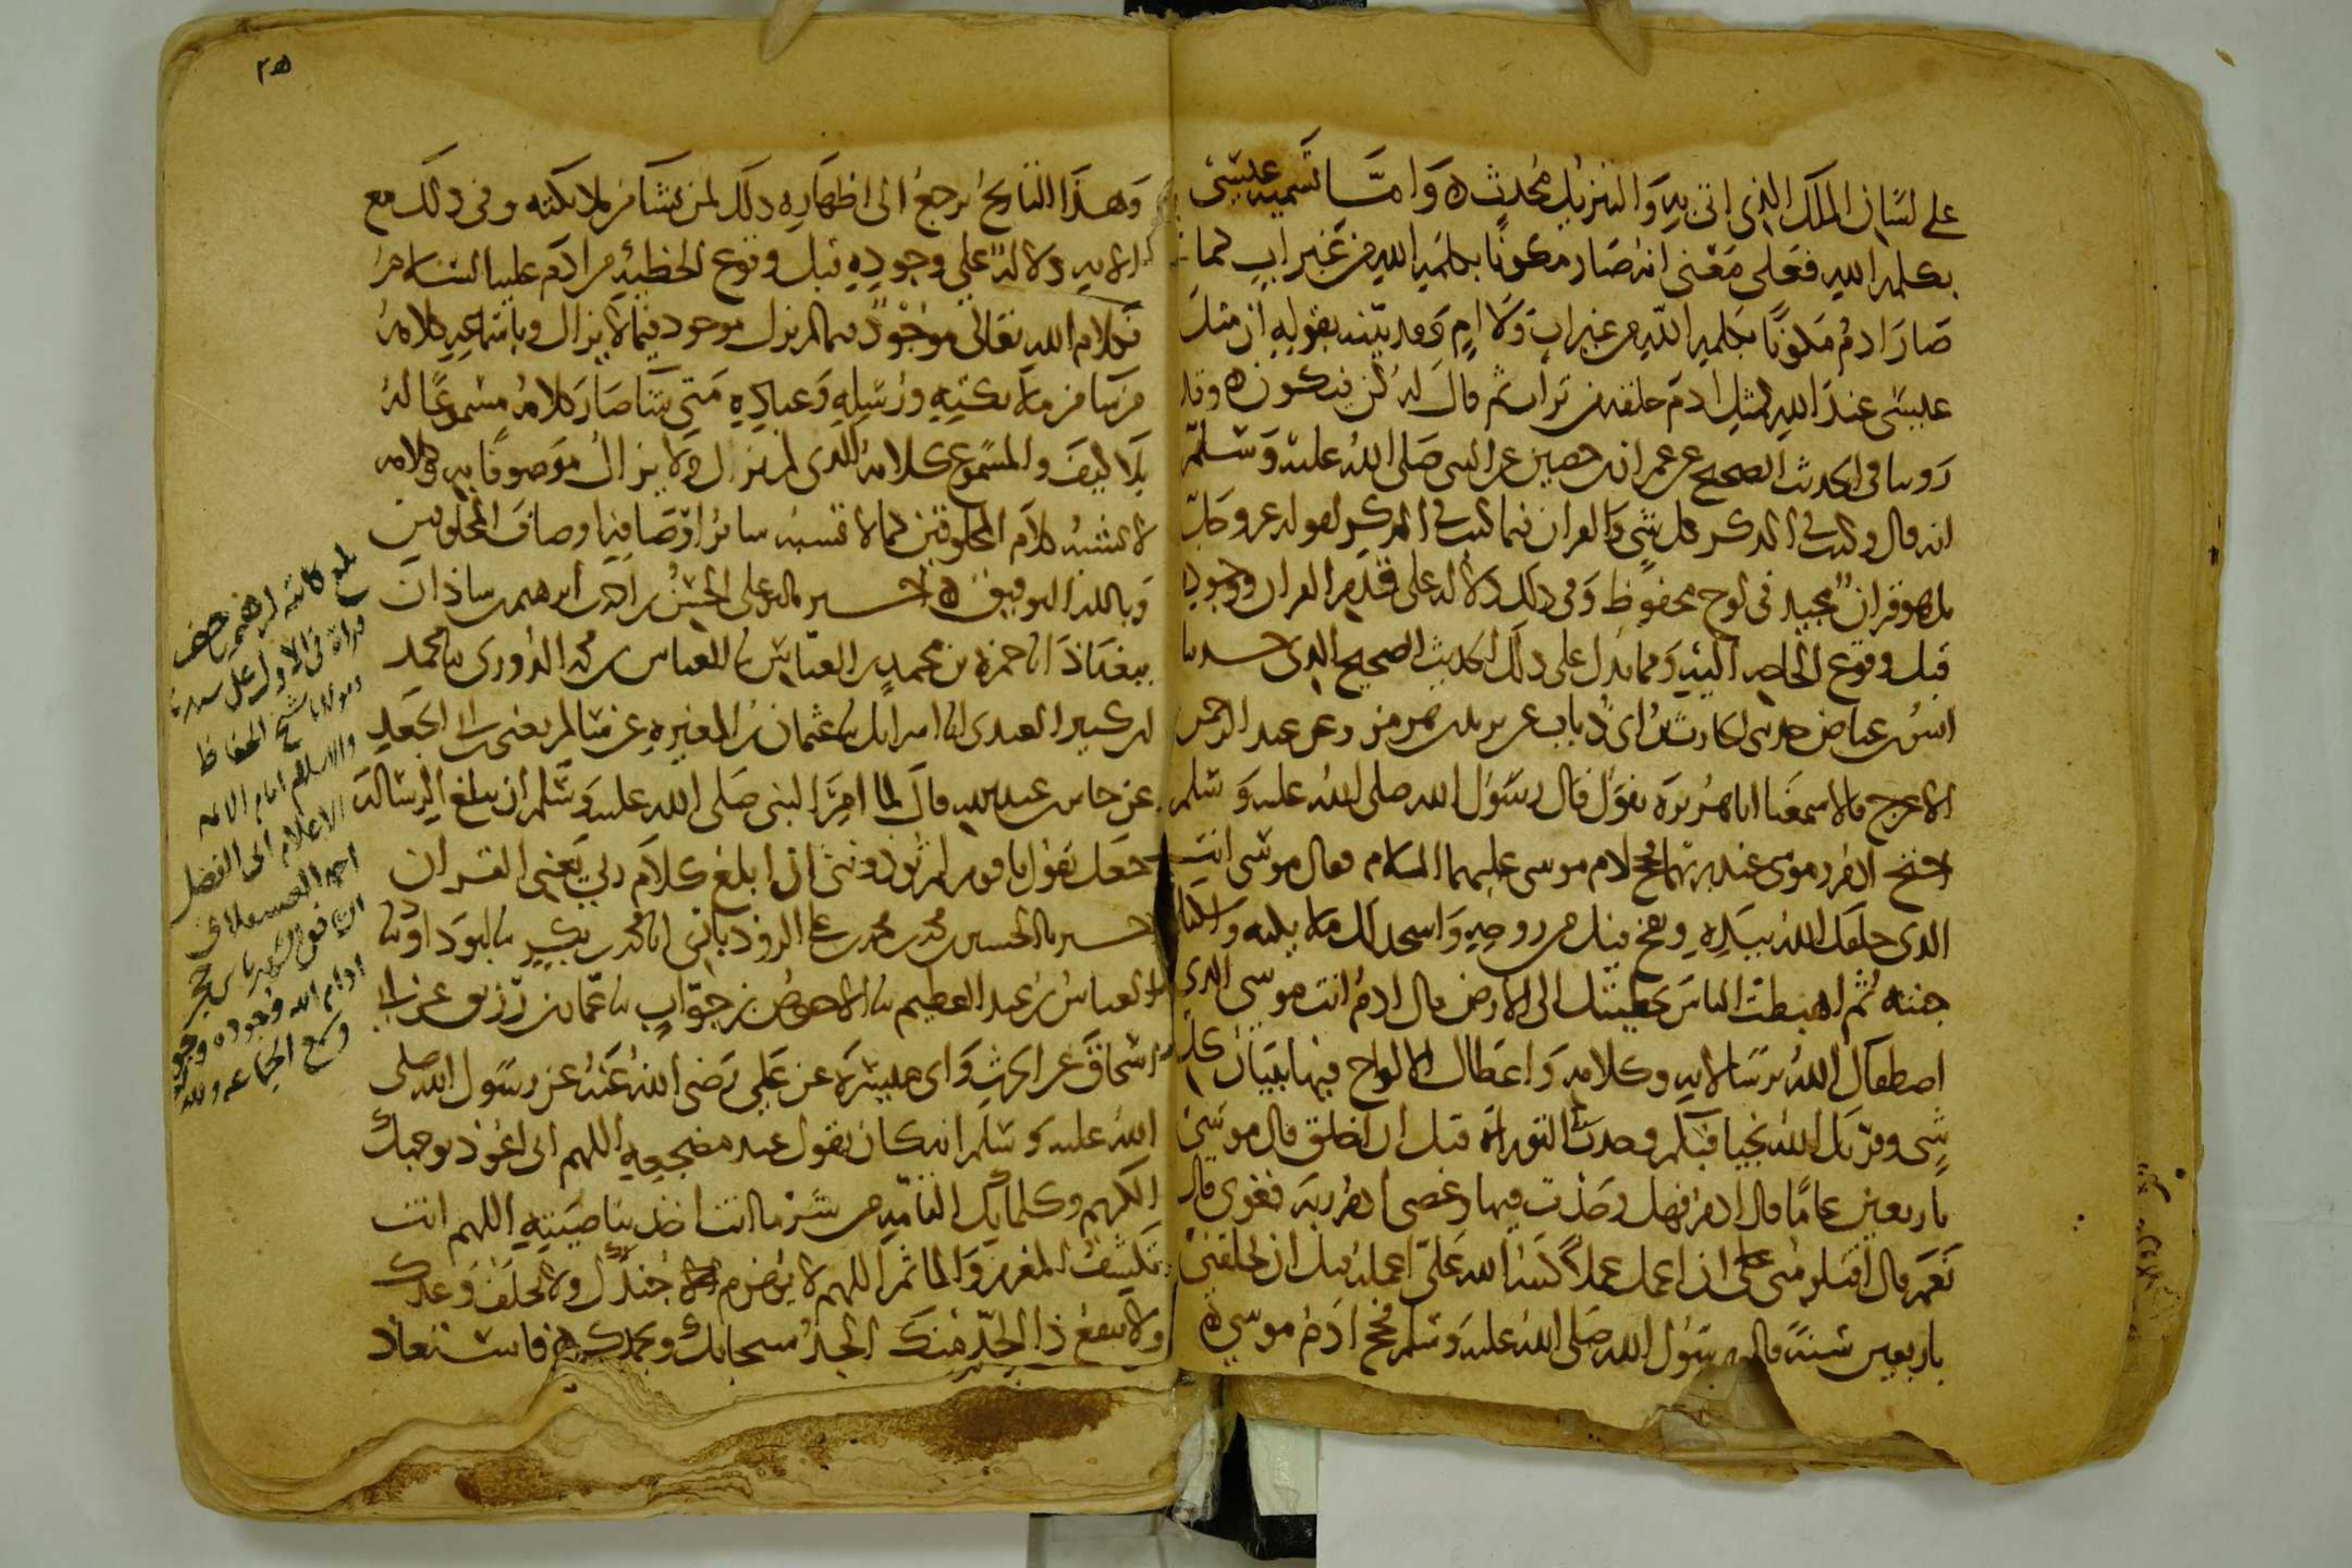 على لسان الملك الذي اتى به والتنزيل محدث واما تسميه عيسى
بكلمه الله فعلى معنى انه صار مكونا بكلمه الله من غير اب كما
صار ادم مكونا بكلمه الله من غير اب ولا ام وقد بينه بقوله ان مثل
عيسى عند الله كمثل ادم خلقه من تراب ثم قال له كن فيكون وقد
روينا في الحديث الصحيح عن عمران بن حصين عن النبي صلى الله عليه وسلم
انه قال وكتب في الذكر كل شي والقران فيما كتب في الذكر لقوله عز وجل
بل هو قران مجيد في لوح محفوظ وفي ذلك دلاله على قدم القران ووجوده
قبل وقوع الحاجه اليه ومما يدل على ذلك الحديث الصحيح الذي حدثنا
انس بن عياض حدثني الحارث بن ابي ذباب عن يزيد بن هرمز وعن عبد الرحمن
الاعرج قالا سمعنا ابا هريرة يقول قال رسول الله صلى الله عليه وسلم
احتج ادم وموسى عند ربهما فحج ادم موسى عليهما السلام فقال موسى انت
الذي خلقك الله بيده ونفخ فيك من روحه واسجد لك ملائكته واسكنك
جنته ثم اهبطت الناس بخطيئتك الى الارض قال ادم انت موسى الذي
اصطفاك الله برسالاته وكلامه واعطاك الالواح فيها تبيان كل
شي وقربك الله نجيا فبكم وجدت التوراة قبل ان اخلق قال موسى
باربعين عاما قال ادم فهل وجدت فيها وعصى ادم ربه فغوى قال
نعم قال افتلومني على ان اعمل عملا كتب الله علي اعمله قبل ان يخلقني
باربعين سنة قال رسول الله صلى الله عليه وسلم فحج ادم موسى
٢٥
وهذا التاريخ يرجع الى اظهاره ذلك لمن شا من ملائكته وفي ذلك مع
الايه دلالة على وجوده قبل وقوع الخطيئه من ادم عليه السلام
فكلام الله تعالى موجود فيما لم يزل موجود فيما لا يزال وباسماعه كلامه
من شا من ملائكته ورسله وعباده متى شا صار كلامه مسموعا له
بلا كيف والمسموع كلامه الذي لم يزل ولا يزال موصوفا به وكلامه
لا يشبه كلام المخلوقين كما لا تشبه سائر اوصافه اوصاف المخلوقين
وبالله التوفيق اخبرنا ابو علي الحسن بن احمد بن ابرهيم بن شاذان
ببغداذ انا حمزة بن محمد بن العباس نا العباس بن محمد الدوري نا محمد
بن كثير العبدي انا اسرايل نا عثمان بن المغيره عن سالم يعني ابن ابي الجعد
عن جابر بن عبد الله قال لما امر النبي صلى الله عليه وسلم ان يبلغ الرسالة
جعل يقول يا قوم لم تؤذونني ان ابلغ كلام ربي يعني القران
اخبرنا ابو علي الحسين بن محمد بن محمد بن علي الروذباري انا محمد بن بكر نا ابو داود نا
العباس بن عبد العظيم نا الاحوص بن جواب نا عمار بن رزيق عن ابي
اسحاق عن الحرث وابي ميسرة عن علي رضي الله عنه عن رسول الله صلى
الله عليه وسلم انه كان يقول عند مضجعه اللهم اني اعوذ بوجهك
الكريم وكلماتك التامه من شر ما انت اخذ بناصيته اللهم انت
تكشف المغرم والماثم اللهم لا يهزم جندك ولا يخلف وعدك
ولا ينفع ذا الجد منك الجد سبحانك وبحمدك فاستعاذ
بلغ كاتبه ابرهيم بن خضر
قراة في الاول على سيدنا
ومولانا شيخ الحفاظ
والاسلام امام الائمه
الاعلام ابي الفضل
احمد العسقلاني
الشافعي الشهير بابن حجر
ادام الله وجوده
وسمع الجماعه ولله